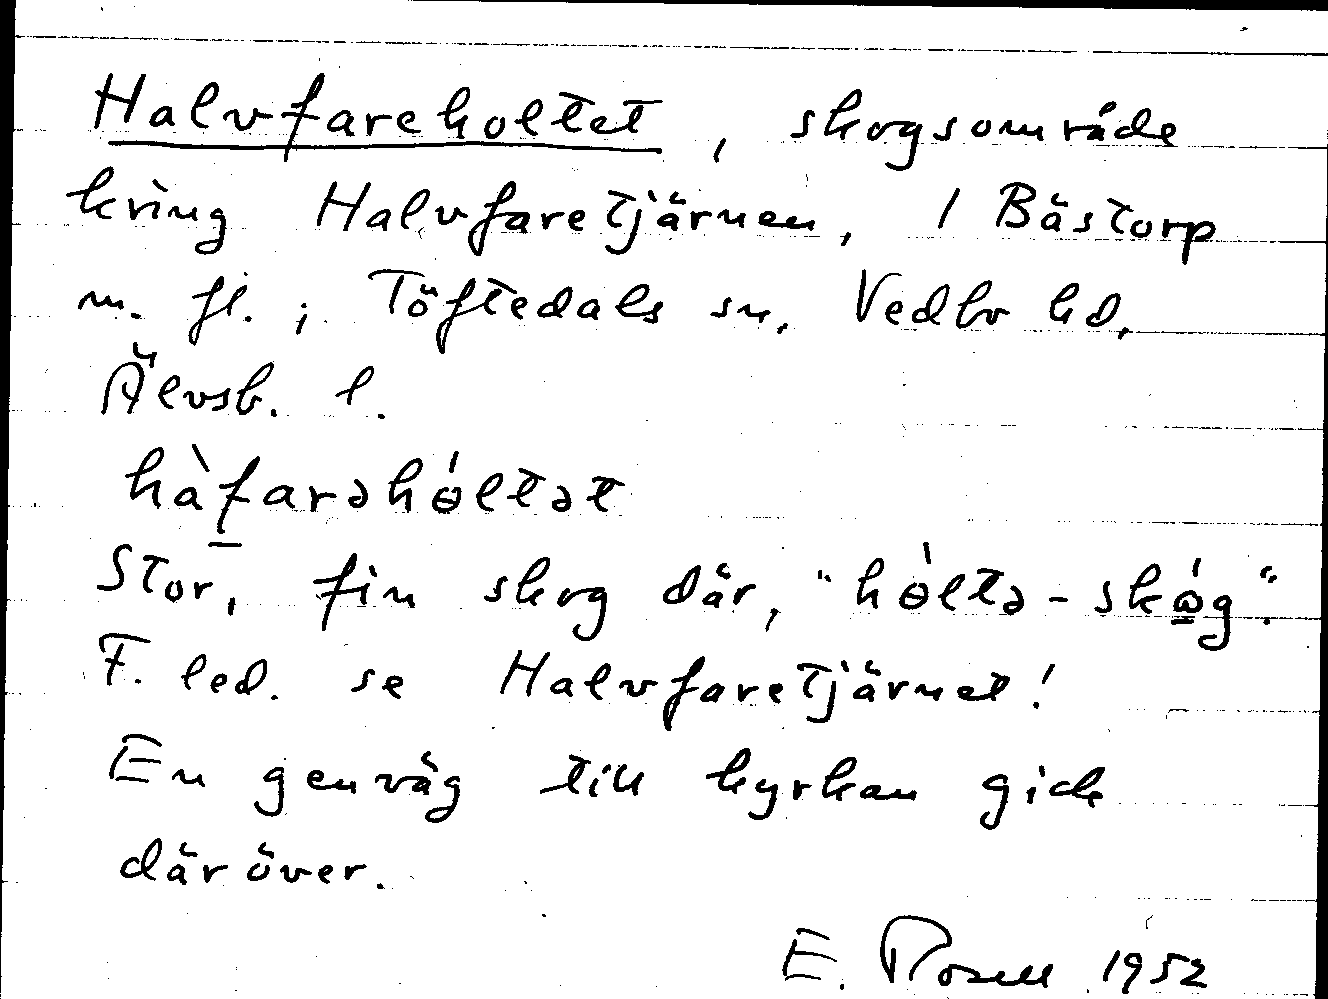 Halvfareholtet, skogsområde
kring Halvfaretjärnen, / Bästorp
m. fl.; Töftedals sn, Vedbo hd,
Älvsb. l.
hàfarəhɵ́ltət
Stor, fin skog där, "hɵ̀ltə-skǫ́g".
F. led. se Halvfaretjärnet!
En genväg till kyrkan gick
där över.
E. Rosell 1952